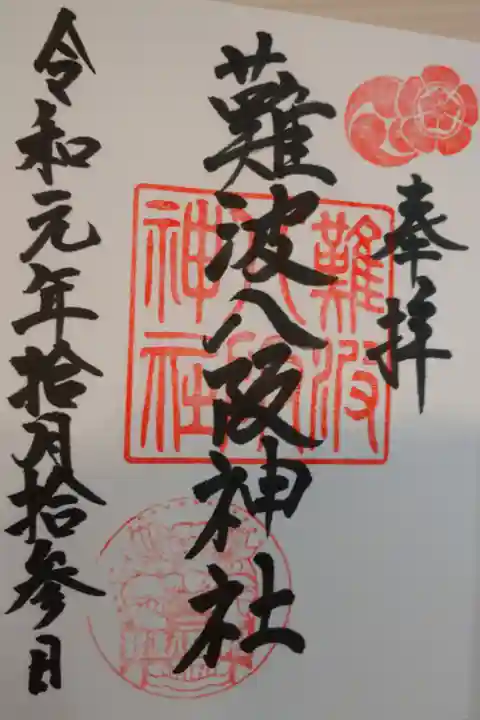 奉拝
難波八阪神社
難波
八阪
神社
令和元年拾月拾参日